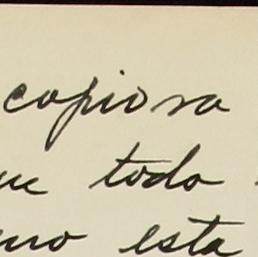 copiosa
ue todo
mo esta